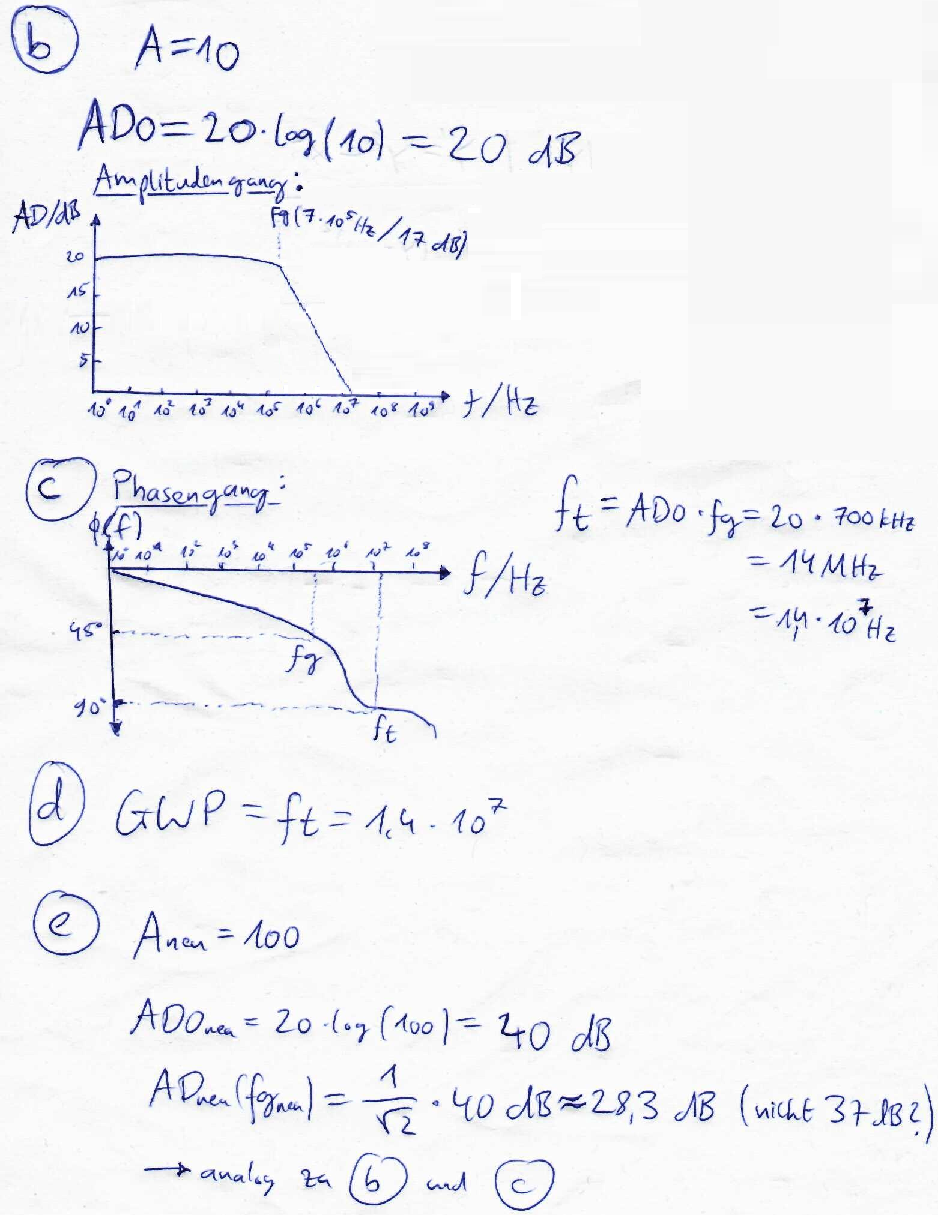 b A=10
AD0 = 20·log(10) = 20 dB
Amplitudengang:
AD/dB
Fg(7·10⁵Hz/17 dB)
20
15
10
5
10⁰ 10¹ 10² 10³ 10⁴ 10⁵ 10⁶ 10⁷ 10⁸ 10⁹ f/Hz
c Phasengang:
φ(f)
10⁰ 10¹ 10² 10³ 10⁴ 10⁵ 10⁶ 10⁷ 10⁸ f/Hz
45°
fg
90°
ft
ft = AD0·fg = 20·700kHz
= 14MHz
= 1,4·10⁷Hz
d GWP = ft = 1,4·10⁷
e Aneu = 100
AD0neu = 20·log(100) = 40 dB
ADneu(fgneu) = 1/√2 · 40 dB ≈ 28,3 dB (nicht 37dB?)
→ analog zu b und c